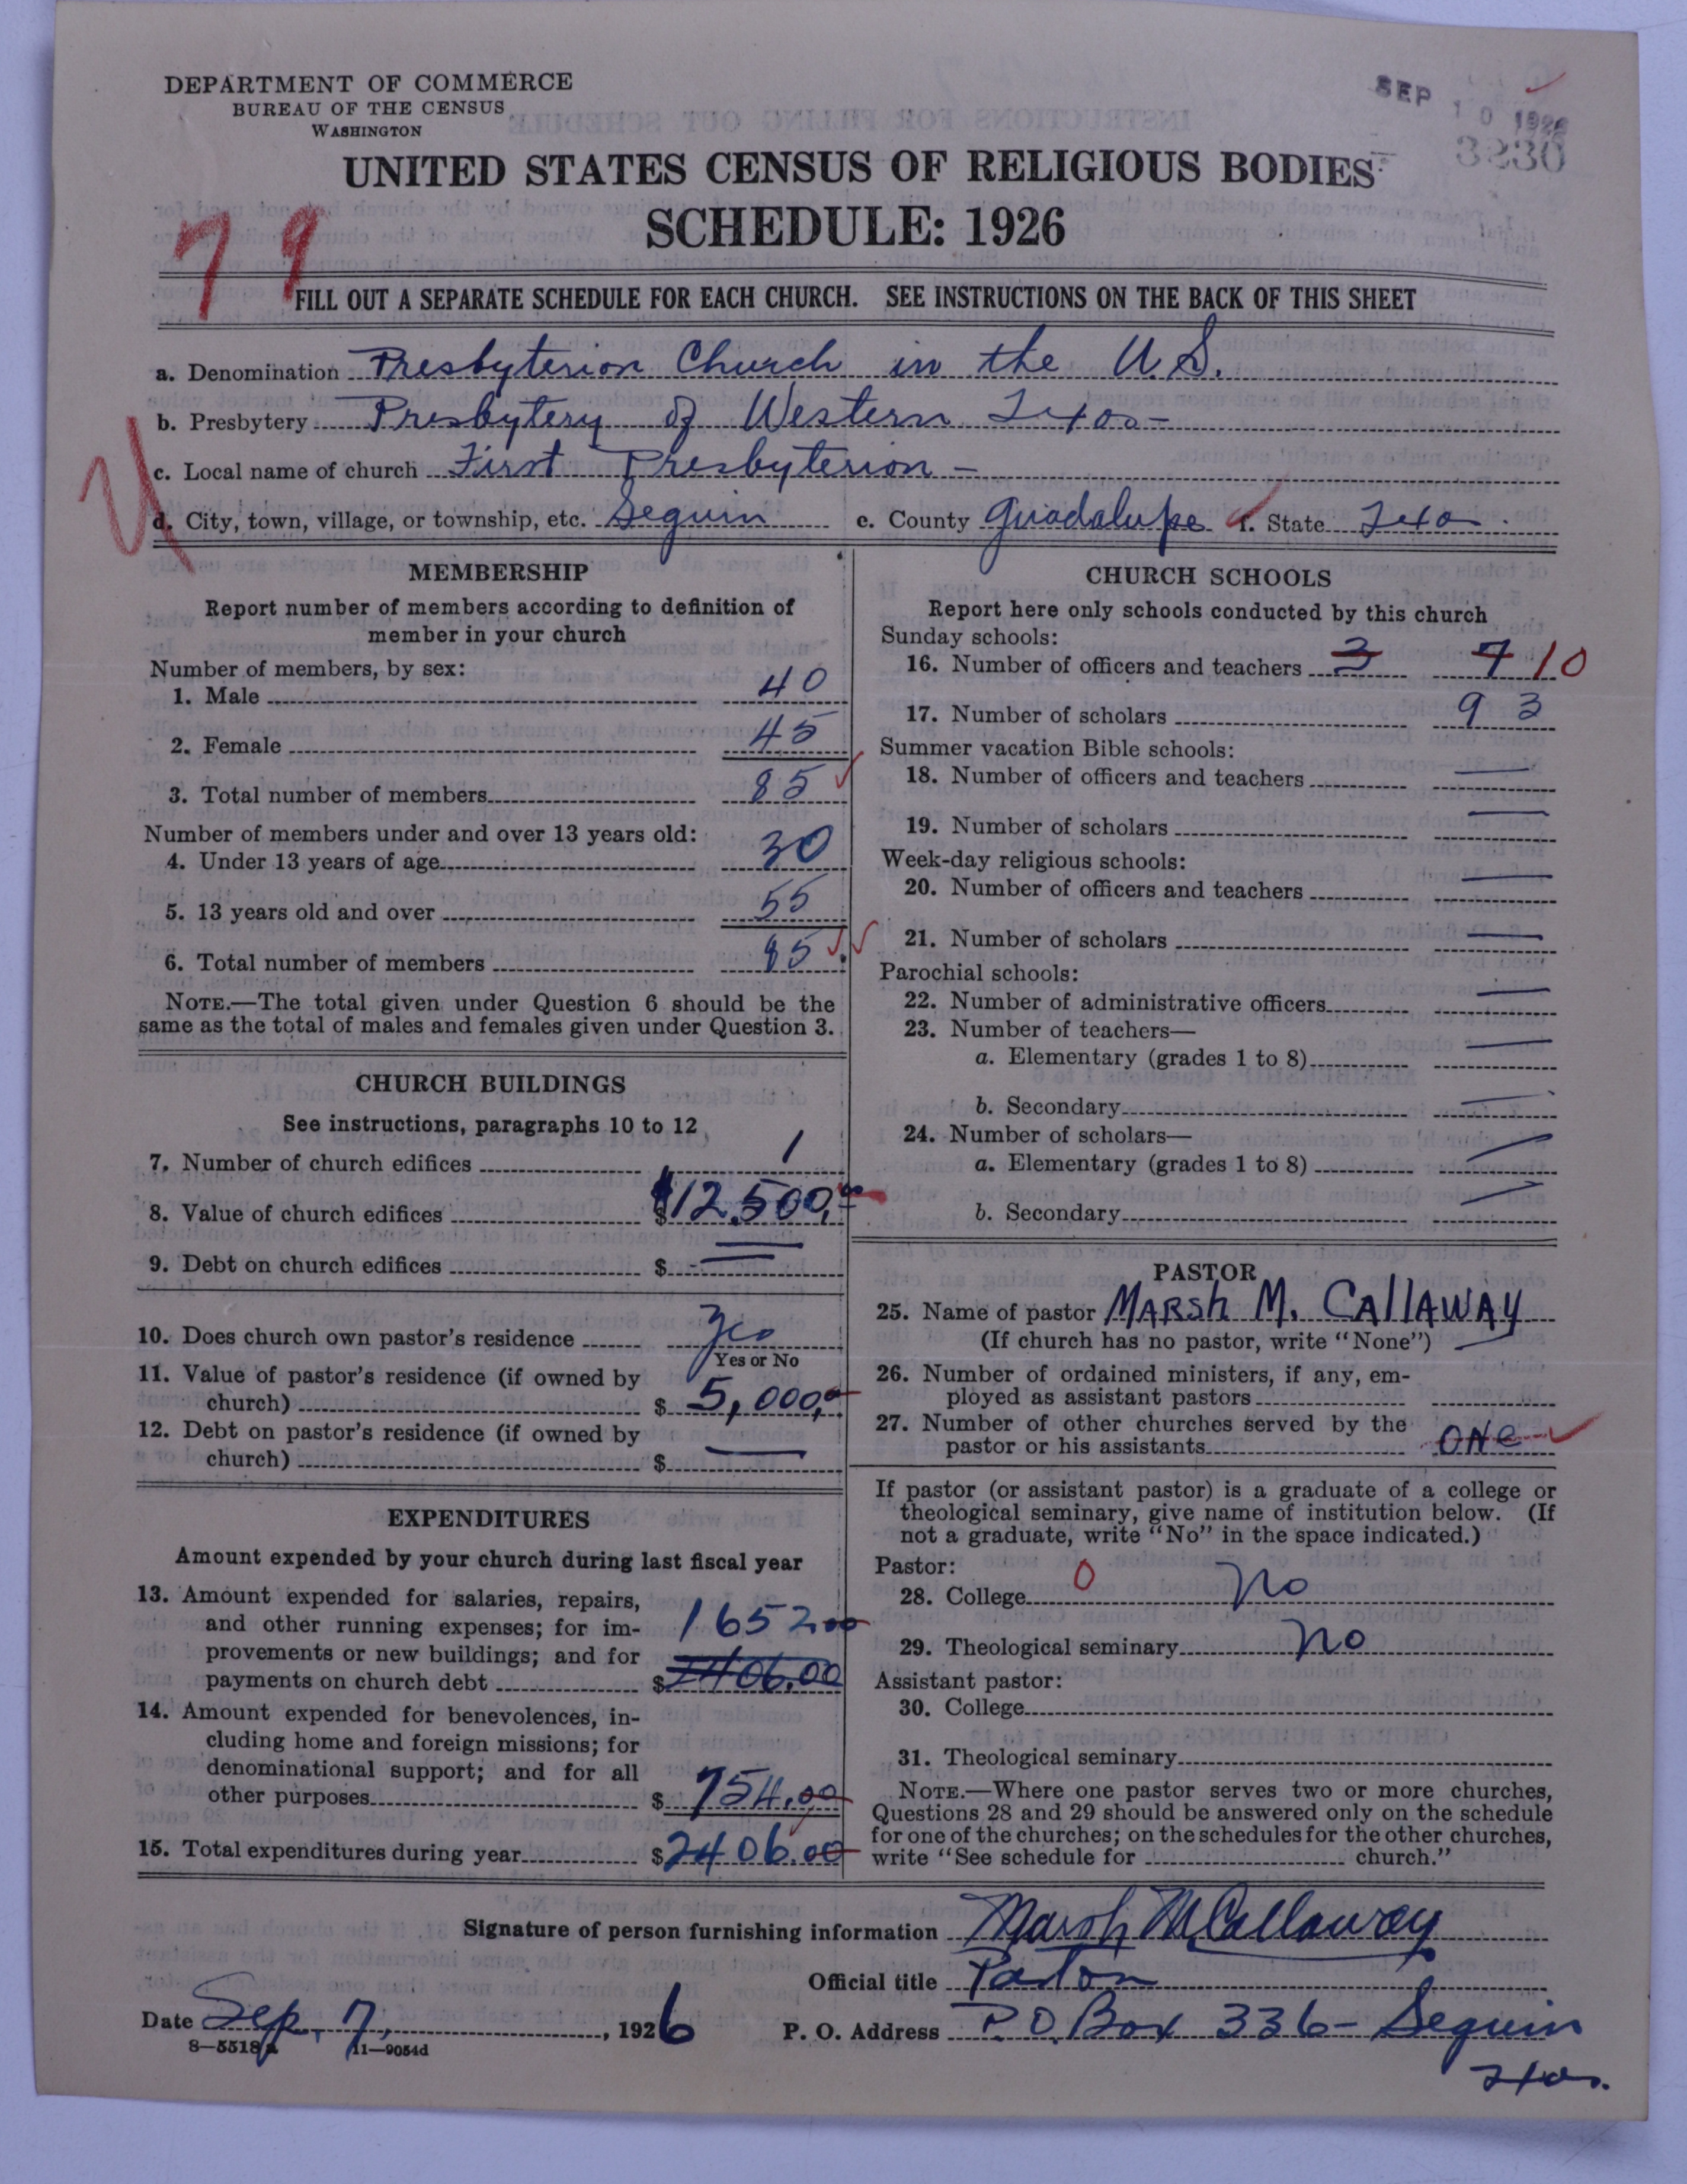 DEPARTMENT OF COMMERCE
BUREAU OF THE CENSUS
WASHINGTON
SEP 10 1926
3830
UNITED STATES CENSUS OF RELIGIOUS BODIES
SCHEDULE: 1926
79
FILL OUT A SEPARATE SCHEDULE FOR EACH CHURCH. SEE INSTRUCTIONS ON THE BACK OF THIS SHEET
a. Denomination Presbyterian Church in the U.S.
b. Presbytery Presbytery of Western Texas-
c. Local name of church First Presbyterian-
d. City, town, village, or township, etc. Seguin e. County Guadalupe f. State Texas.
MEMBERSHIP
Report number of members according to definition of
member in your church
Number of members, by sex:
1. Male 40
2. Female 45
3. Total number of members 85
Number of members under and over 13 years old:
4. Under 13 years of age 30
5. 13 years old and over 55
6. Total number of members 85
NOTE.—The total given under Question 6 should be the
same as the total of males and females given under Question 3.
CHURCH BUILDINGS
See instructions, paragraphs 10 to 12
7. Number of church edifices 1
8. Value of church edifices $12,500,00
9. Debt on church edifices $ —
10. Does church own pastor's residence Yes
Yes or No
11. Value of pastor's residence (if owned by
church) $ 5,000,00
12. Debt on pastor's residence (if owned by
church) $ —
EXPENDITURES
Amount expended by your church during last fiscal year
13. Amount expended for salaries, repairs,
and other running expenses; for im- 1652.00
provements or new buildings; and for
payments on church debt $2406.00
14. Amount expended for benevolences, in-
cluding home and foreign missions; for
denominational support; and for all
other purposes $ 754.00
15. Total expenditures during year $2406.00
CHURCH SCHOOLS
Report here only schools conducted by this church
Sunday schools:
16. Number of officers and teachers 3 7 10
17. Number of scholars 93
Summer vacation Bible schools:
18. Number of officers and teachers —
19. Number of scholars —
Week-day religious schools:
20. Number of officers and teachers —
21. Number of scholars —
Parochial schools:
22. Number of administrative officers —
23. Number of teachers—
a. Elementary (grades 1 to 8) —
b. Secondary —
24. Number of scholars—
a. Elementary (grades 1 to 8) —
b. Secondary —
PASTOR
25. Name of pastor MARSh M. CAllAWAY
(If church has no pastor, write "None")
26. Number of ordained ministers, if any, em-
ployed as assistant pastors —
27. Number of other churches served by the
pastor or his assistants ONe
If pastor (or assistant pastor) is a graduate of a college or
theological seminary, give name of institution below. (If
not a graduate, write "No" in the space indicated.)
Pastor:
28. College 0 No
29. Theological seminary No
Assistant pastor:
30. College
31. Theological seminary
NOTE.—Where one pastor serves two or more churches,
Questions 28 and 29 should be answered only on the schedule
for one of the churches; on the schedules for the other churches,
write "See schedule for church."
Signature of person furnishing information Marsh M Callaway
Official title Pastor
Date Sep. 7, , 1926 P. O. Address P.O. Box 336- Seguin
Texas.
8—5518a 11—9054d